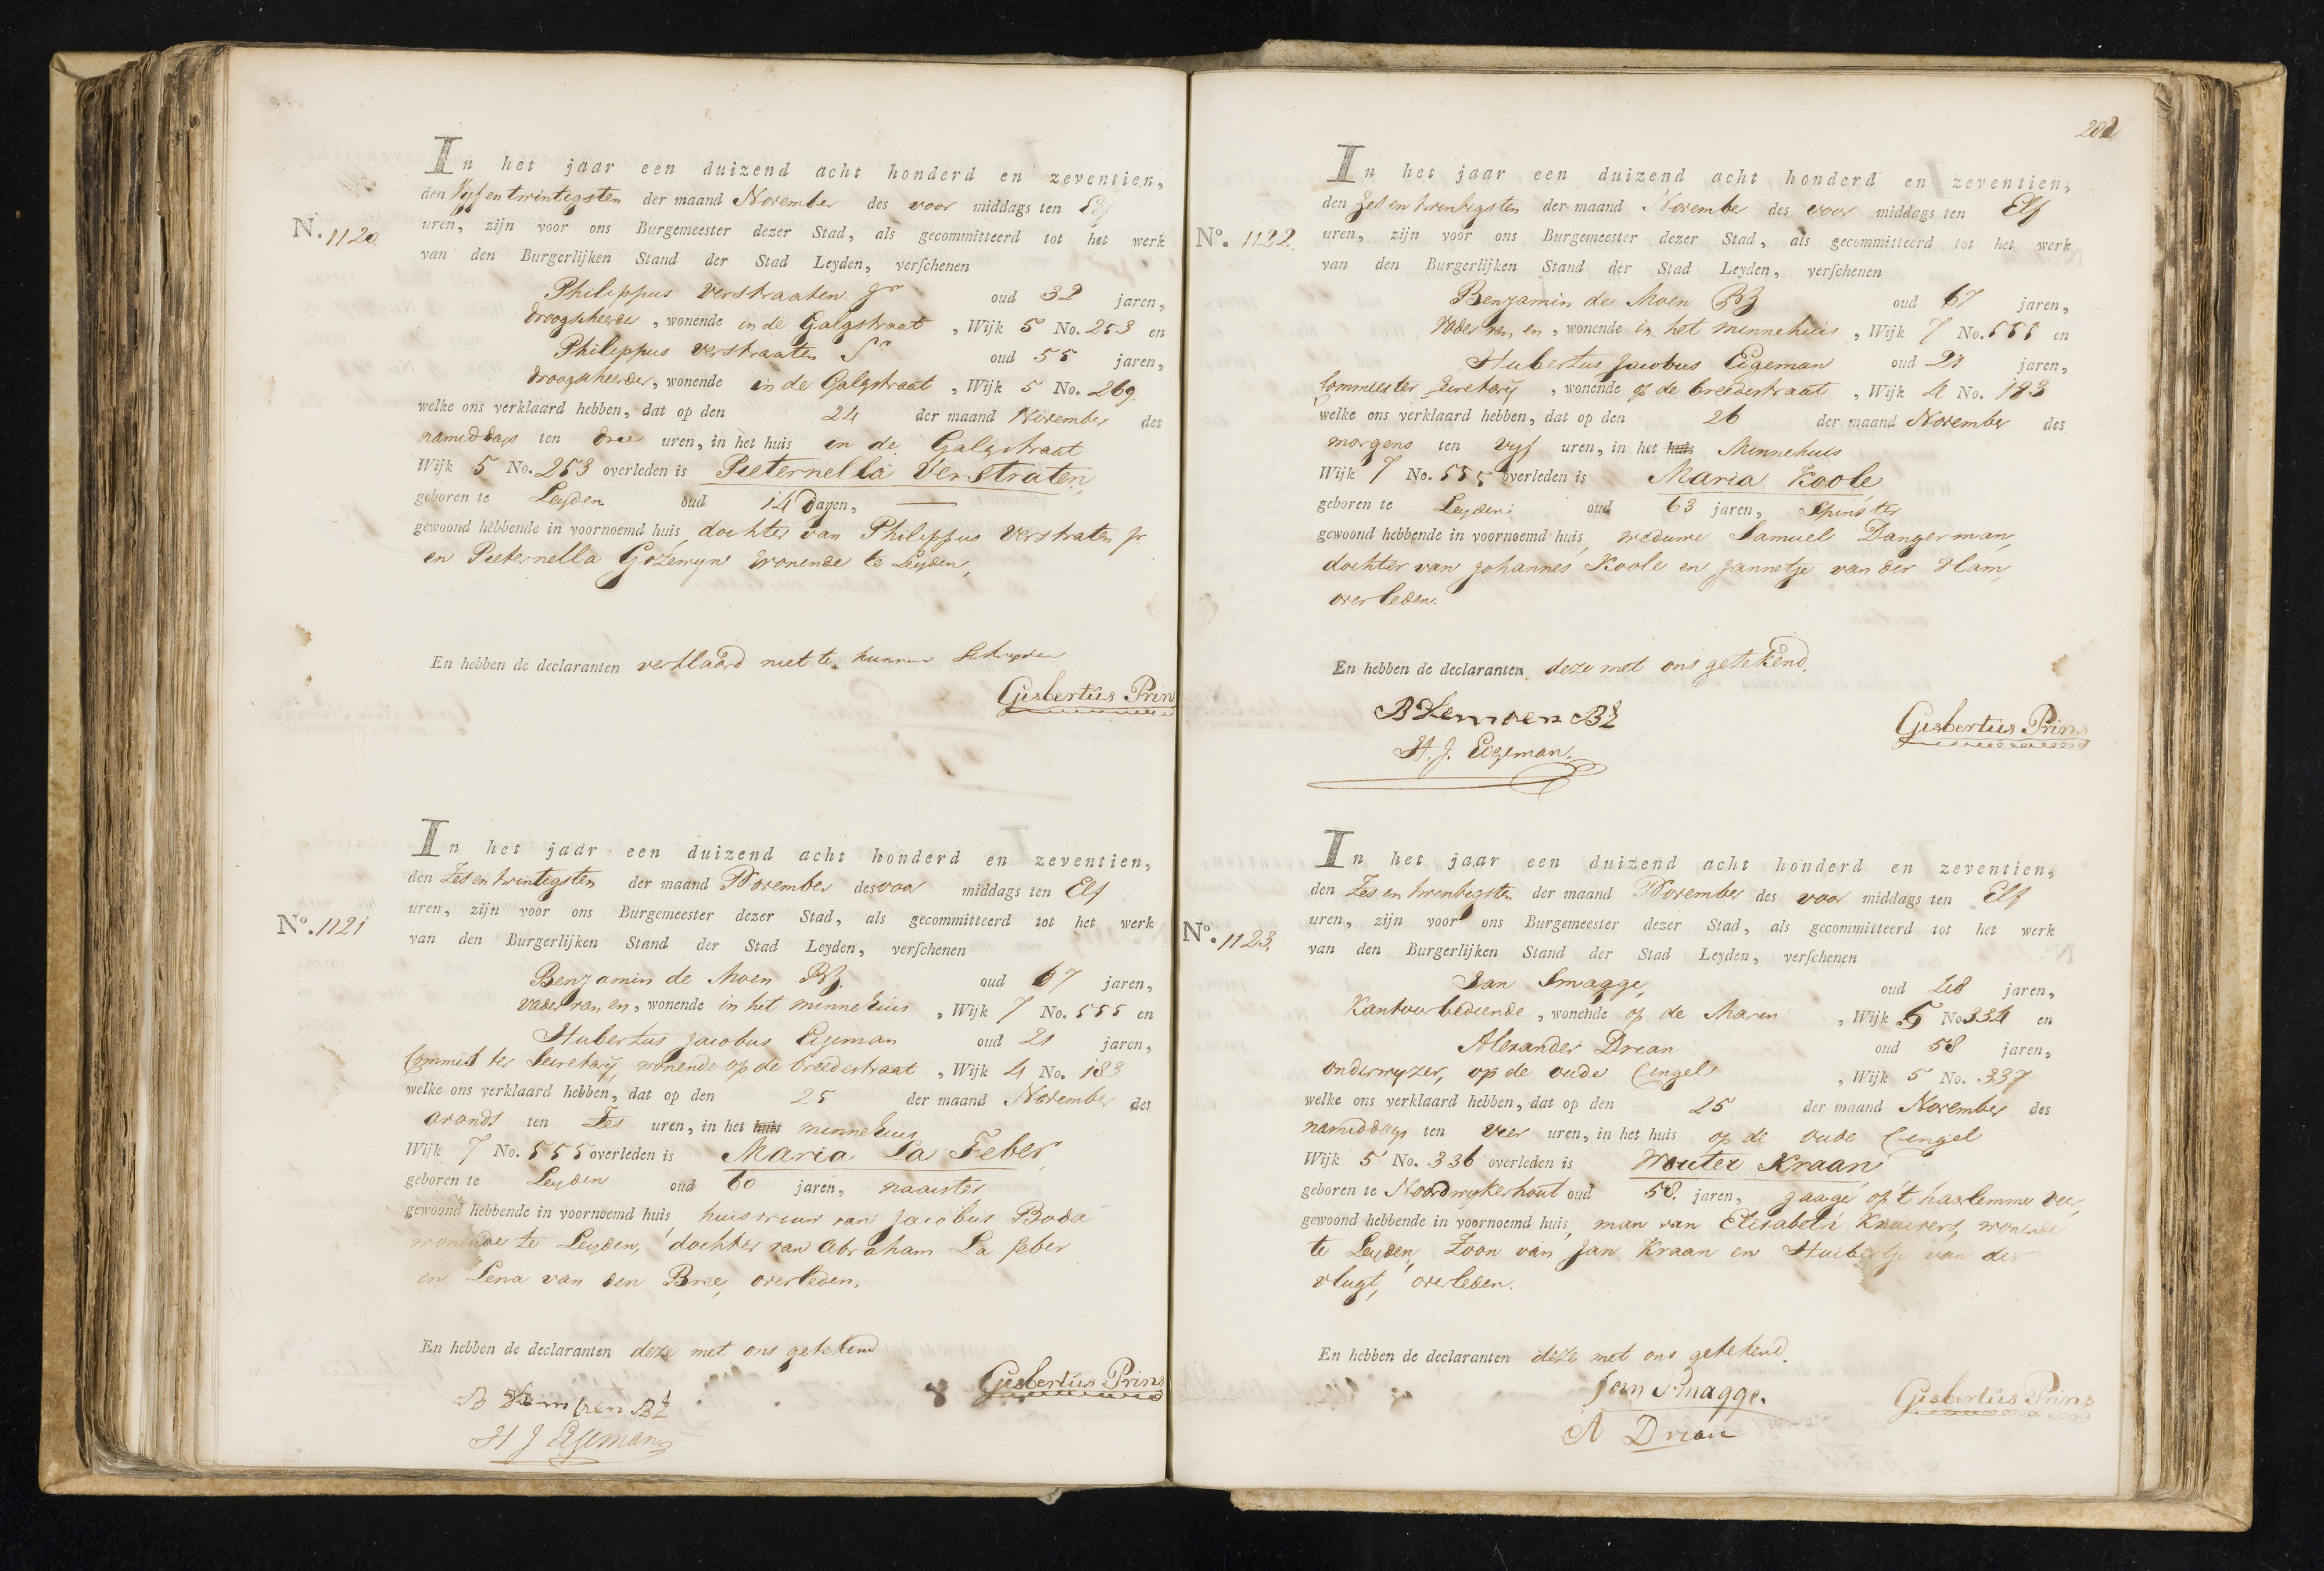 In het jaar een duizend acht honderd en zeventien,
den Vyf en twintigsten der maand November des voor middags ten Elf
N. 1120 uren, zijn voor ons Burgemeester dezer Stad, als gecommitteerd tot het werk
van den Burgerlijken Stand der Stad Leyden, verſchenen
Philippus Verstraaten Jr oud 32 jaren,
droogscheerder, wonende in de Galgstraat, Wijk 5 No. 253 en
Philippus Verstraaten Sr oud 55 jaren,
droogscheerder, wonende in de Galgstraat, Wijk 5 No. 269
welke ons verklaard hebben, dat op den 24 der maand November des
namiddags ten drie uren, in het huis in de Galgstraat
Wijk 5 No. 253 overleden is Pieternella Verstraten,
geboren te Leyden oud 14 dagen,
gewoond hebbende in voornoemd huis, dochter van Philippus Verstraten Jr
en Pieternella Gozewyn wonende te Leyden,
En hebben de declaranten verklaard niet te kunnen Schryven
Gisbertus Prins
In het jaar een duizend acht honderd en zeventien,
den Zes en twintigsten der maand November des voor middags ten Elf
No. 1121 uren, zijn voor ons Burgemeester dezer Stad, als gecommitteerd tot het werk
van den Burgerlijken Stand der Stad Leyden, verſchenen
Benjamin de Moen BZ. oud 67 jaren,
vader van en, wonende in het minnehuis, Wijk 7 No. 555 en
Hubertus Jacobus Eigeman oud 21 jaren,
Commies ter Secretary, wonende op de breedestraat, Wijk 4 No. 183
welke ons verklaard hebben, dat op den 25 der maand November des
avonds ten Zes uren, in het huis minnehuis
Wijk 7 No. 555 overleden is Maria La Feber,
geboren te Leyden oud 60 jaren, naaister
gewoond hebbende in voornoemd huis, huisvrouw van Jacobus Boda
wonende te Leyden, dochter van Abraham La feber
en Lena van den Bree, overleden.
En hebben de declaranten deze met ons getekend
Gisbertus Prins
B DeMoen BZ
H J Eigeman
282
In het jaar een duizend acht honderd en zeventien,
den Zes en twintigsten der maand November des voor middags ten Elf
No. 1122. uren, zijn voor ons Burgemeester dezer Stad, als gecommitteerd tot het werk
van den Burgerlijken Stand der Stad Leyden, verſchenen
Benjamin de Moen BZ oud 67 jaren,
Vader van en, wonende in het minnehuis, Wijk 7 No. 555 en
Hubertus Jacobus Eigeman oud 21 jaren,
Commies ter Secretary, wonende op de breedestraat, Wijk 4 No. 183
welke ons verklaard hebben, dat op den 26 der maand November des
morgens ten vyf uren, in het huis Minnehuis
Wijk 7 No. 555 overleden is Maria Koole
geboren te Leyden oud 63 jaren, Spinster
gewoond hebbende in voornoemd huis, weduwe Samuel Dangerman,
dochter van Johannes Koole en Jannetje van der Ham,
overleden.
En hebben de declaranten deze met ons getekend.
B DeMoen BZ
Gisbertus Prins
H. J. Eigeman.
In het jaar een duizend acht honderd en zeventien,
den Zes en twintigsten der maand November des voor middags ten Elf
No. 1123. uren, zijn voor ons Burgemeester dezer Stad, als gecommitteerd tot het werk
van den Burgerlijken Stand der Stad Leyden, verſchenen
Jan Smagge, oud 48 jaren,
Kantoorbediende, wonende op de Maren, Wijk 5 No. 334 en
Alexander Drian oud 58 jaren,
onderwyzer, op de oude Cingel, Wijk 5 No. 337
welke ons verklaard hebben, dat op den 25 der maand November des
namiddags ten vier uren, in het huis op de oude Cingel
Wijk 5 No. 336 overleden is Wouter Kraan
geboren te Noordwykerhout oud 58. jaren, Jaager op 't haarlemmer veer,
gewoond hebbende in voornoemd huis, man van Elisabeth wonende
te Leyden, Zoon van Jan Kraan en Huibertje van der
vlugt, overleden.
En hebben de declaranten deze met ons getekend.
Jan Smagge.
Gisbertus Prins
A Drian